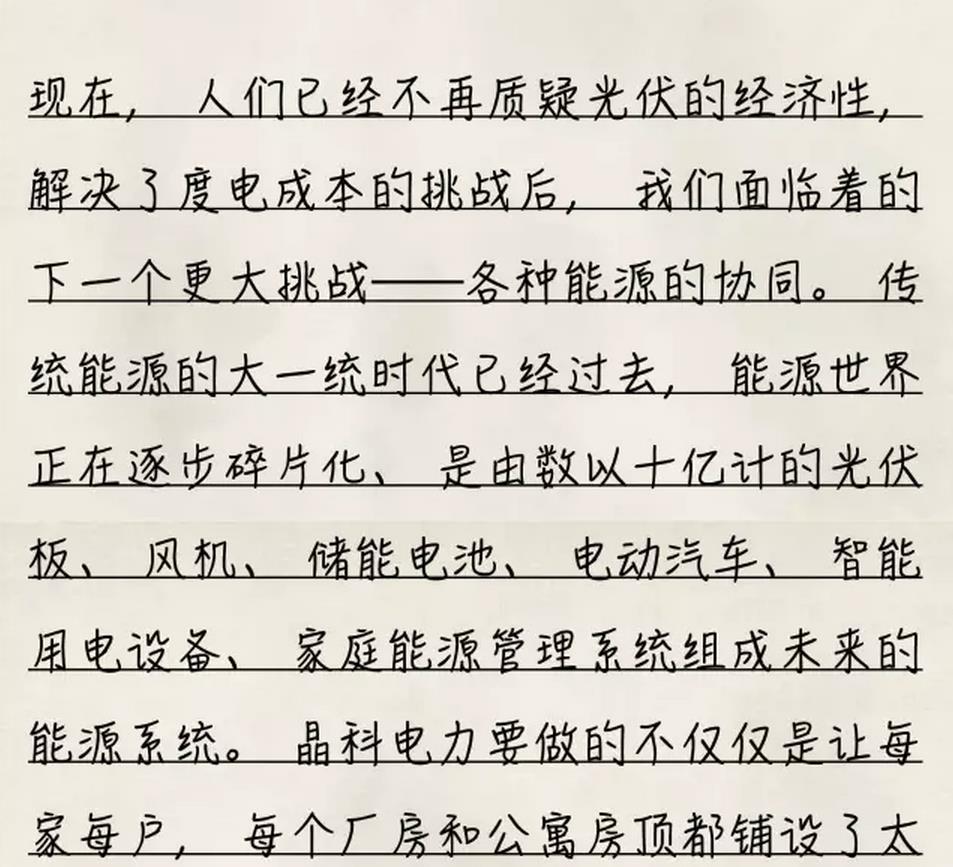 现在，人们已经不再质疑光伏的经济性，
解决了度电成本的挑战后，我们面临着的
下一个更大挑战——各种能源的协同。传
统能源的大一统时代已经过去，能源世界
正在逐步碎片化、是由数以十亿计的光伏
板、风机、储能电池、电动汽车、智能
用电设备、家庭能源管理系统组成未来的
能源系统。晶科电力要做的不仅仅是让每
家每户，每个厂房和公寓房顶都铺设了太